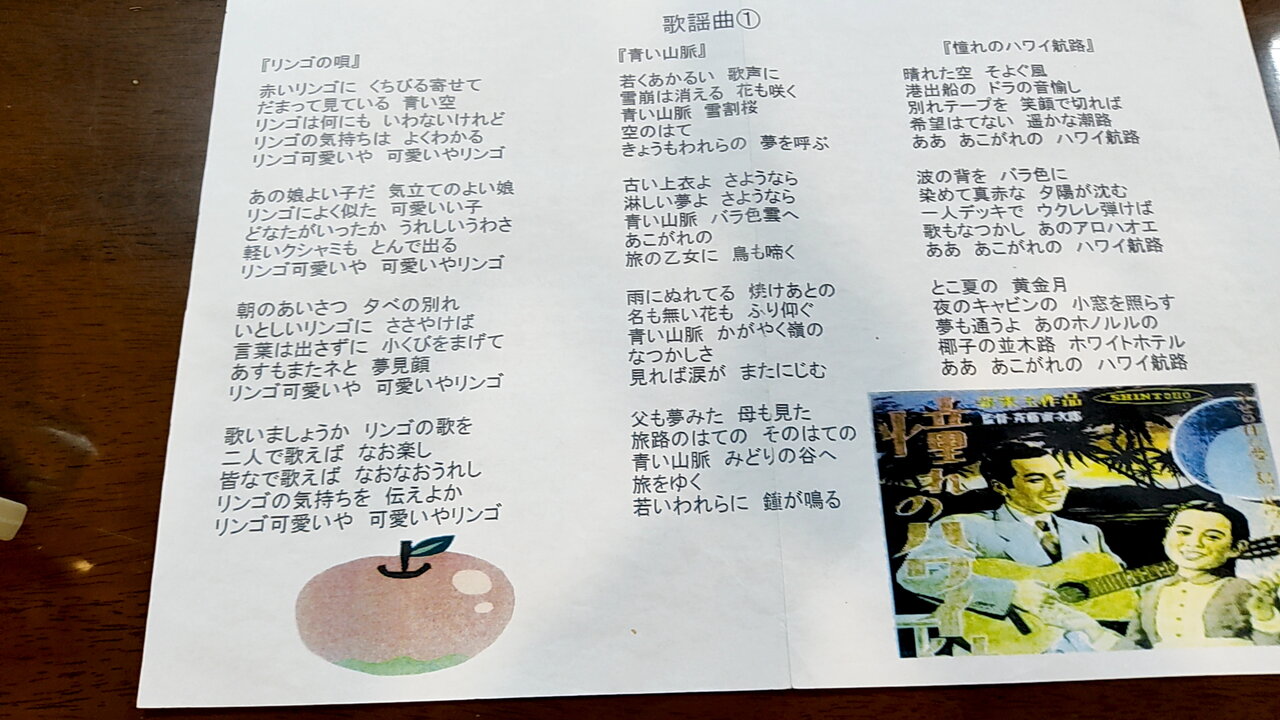 歌謡曲①
『リンゴの唄』
赤いリンゴに くちびる寄せて
だまって見ている 青い空
リンゴは何にも いわないけれど
リンゴの気持ちは よくわかる
リンゴ可愛いや 可愛いやリンゴ
あの娘よい子だ 気立てのよい娘
リンゴによく似た 可愛いい子
どなたがいったか うれしいうわさ
軽いクシャミも とんで出る
リンゴ可愛いや 可愛いやリンゴ
朝のあいさつ 夕べの別れ
いとしいリンゴに ささやけば
言葉は出さずに 小くびをまげて
あすもまたネと 夢見顔
リンゴ可愛いや 可愛いやリンゴ
歌いましょうか リンゴの歌を
二人で歌えば なお楽し
皆なで歌えば なおなおうれし
リンゴの気持ちを 伝えよか
リンゴ可愛いや 可愛いやリンゴ
『青い山脈』
若くあかるい 歌声に
雪崩は消える 花も咲く
青い山脈 雪割桜
空のはて
きょうもわれらの 夢を呼ぶ
古い上衣よ さようなら
淋しい夢よ さようなら
青い山脈 バラ色雲へ
あこがれの
旅の乙女に 鳥も啼く
雨にぬれてる 焼けあとの
名も無い花も ふり仰ぐ
青い山脈 かがやく嶺の
なつかしさ
見れば涙が またにじむ
父も夢みた 母も見た
旅路のはての そのはての
青い山脈 みどりの谷へ
旅をゆく
若いわれらに 鐘が鳴る
『憧れのハワイ航路』
晴れた空 そよぐ風
港出船の ドラの音愉し
別れテープを 笑顔で切れば
希望はてない 遥かな潮路
ああ あこがれの ハワイ航路
波の背を バラ色に
染めて真赤な 夕陽が沈む
一人デッキで ウクレレ弾けば
歌もなつかし あのアロハオエ
ああ あこがれの ハワイ航路
とこ夏の 黄金月
夜のキャビンの 小窓を照らす
夢も通うよ あのホノルルの
椰子の並木路 ホワイトホテル
ああ あこがれの ハワイ航路
SHINTOHO
憧れのハワイ航路